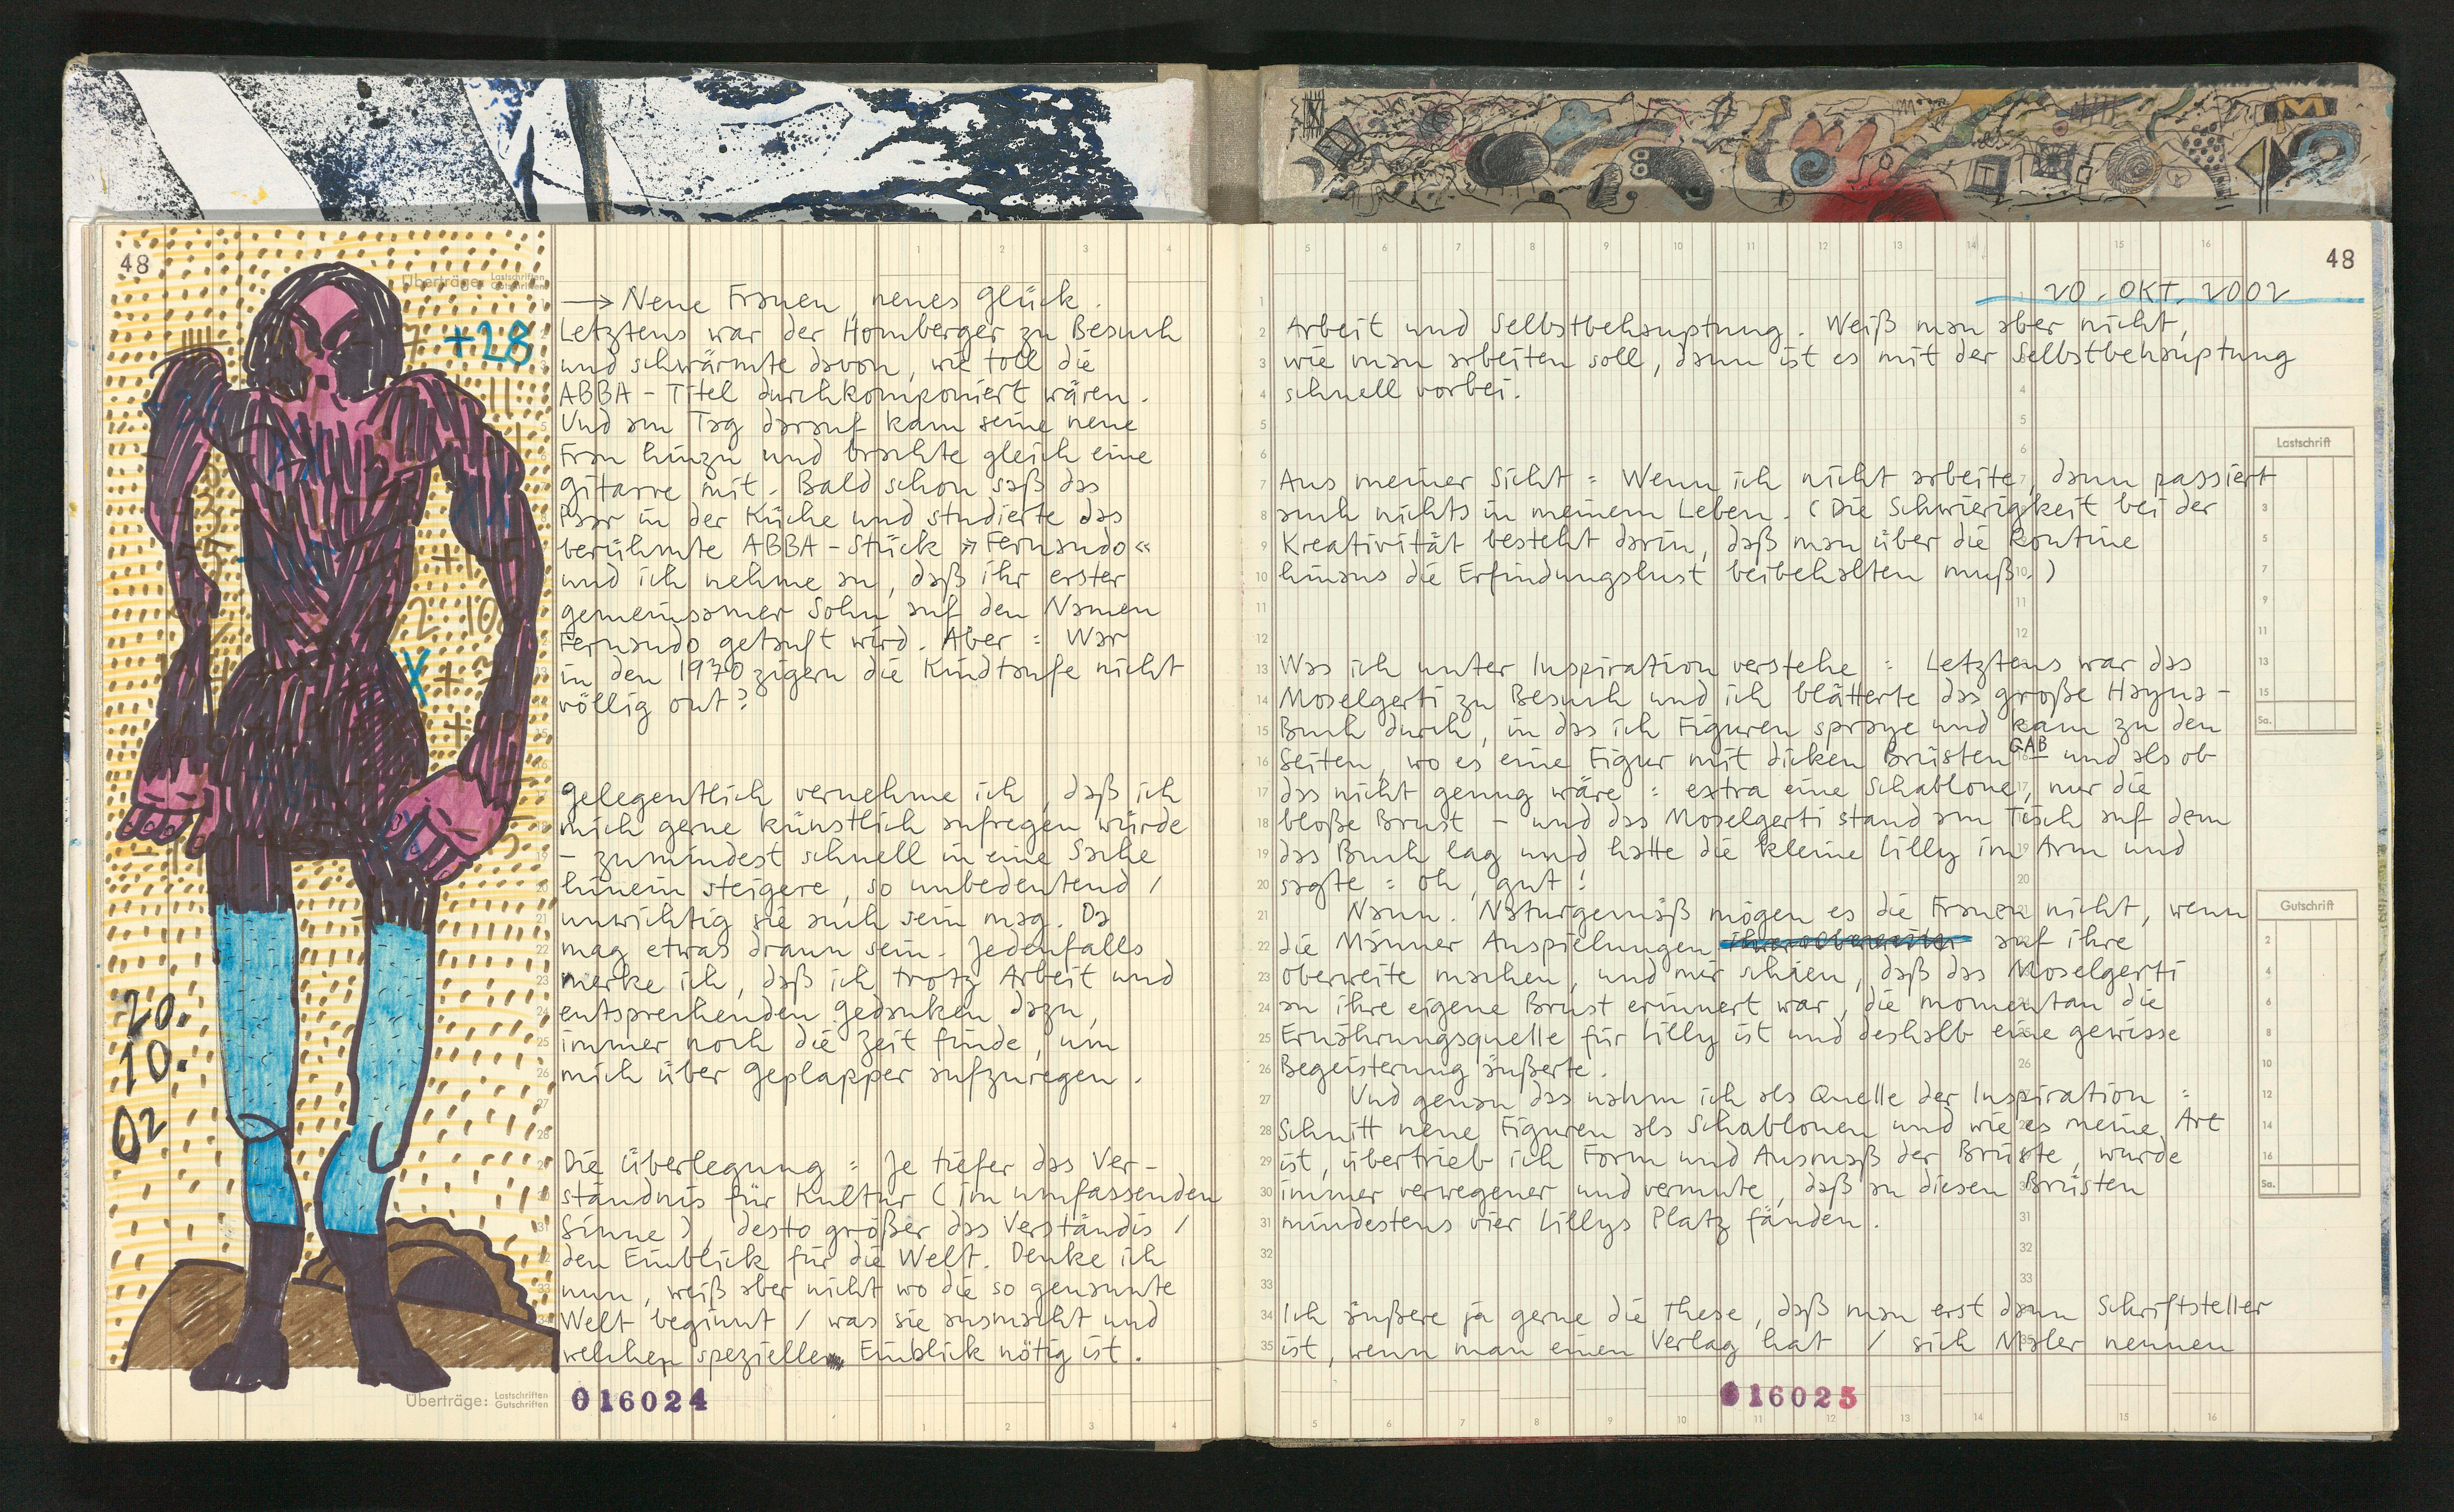 48
Überträge: Lastschriften Gutschriften
+28
20.
10.
02
→ Neue Frauen, neues Glück.
Letztens war der Homberger zu Besuch
und schwärmte davon, wie toll die
ABBA-Titel durchkomponiert wären.
Und am Tag darauf kam seine neue
Frau hinzu und brachte gleich eine
Gitarre mit. Bald schon saß das
Paar in der Küche und studierte das
berühmte ABBA-Stück »Fernando«
und ich nehme an, daß ihr erster
gemeinsamer Sohn auf den Namen
Fernando getauft wird. Aber: War
in den 1970zigern die Kindtaufe nicht
völlig out?
Gelegentlich vernehme ich, daß ich
mich gerne künstlich aufregen würde
– zumindest schnell in eine Sache
hinein steigere, so unbedeutend /
unwichtig sie auch sein mag. Da
mag etwas drann sein. Jedenfalls
merke ich, daß ich trotz Arbeit und
entsprechenden Gedanken dazu,
immer noch die Zeit finde, um
mich über Geplapper aufzuregen.
Die Überlegung: Je tiefer das Ver-
ständnis für Kultur (im umfassenden
Sinne), desto größer das Verständis /
den Einblick für die Welt. Denke ich
nun, weiß aber nicht wo die so genannte
Welt beginnt / was sie ausmacht und
welchen spezieller Einblick nötig ist.
Überträge: Lastschriften Gutschriften
016024
48
20. OKT. 2002
Arbeit und Selbstbehauptung. Weiß man aber nicht,
wie man arbeiten soll, dann ist es mit der Selbstbehauptung
schnell vorbei.
Aus meiner Sicht: Wenn ich nicht arbeite, dann passiert
auch nichts in meinem Leben. (Die Schwierigkeit bei der
Kreativität besteht darin, daß man über die Routine
hinaus die Erfindungslust beibehalten muß.)
Was ich unter Inspiration verstehe: Letztens war das
Moselgerti zu Besuch und ich blätterte das große Hayna-
Buch durch, in das ich Figuren spraye und kam zu den
Seiten, wo es eine Figur mit dicken Brüsten GAB – und als ob
das nicht genug wäre: extra eine Schablone, nur die
bloße Brust – und das Moselgerti stand am Tisch auf dem
das Buch lag und hatte die kleine Lilly im Arm und
sagte: oh, gut!
Nann. Naturgemäß mögen es die Frauen nicht, wenn
die Männer Anspielungen auf ihre
Oberweite machen, und mir schien, daß das Moselgerti
an ihre eigene Brust erinnert war, die momentan die
Ernährungsquelle für Lilly ist und deshalb eine gewisse
Begeisterung äußerte.
Und genau das nahm ich als Quelle der Inspiration:
Schnitt neue Figuren als Schablonen und wie es meine Art
ist, übertrieb ich Form und Ausmaß der Brüste, wurde
immer verwegener und vermute, daß an diesen Brüsten
mindestens vier Lillys Platz fänden.
Ich äußere ja gerne die These, daß man erst dann Schriftsteller
ist, wenn man einen Verlag hat / sich Maler nennen
Lastschrift
Sa.
Gutschrift
Sa.
016025